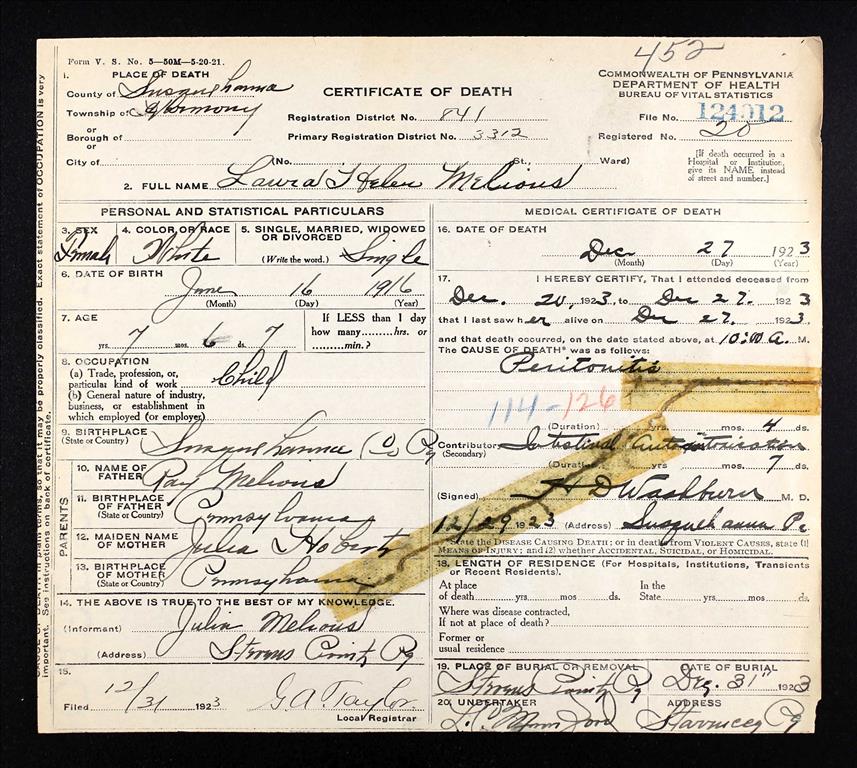 452
Form V. S. No. 5—50M—5-20-21.
1. PLACE OF DEATH
County of Susquehanna
Township of Harmony
or
Borough of
or
City of
CERTIFICATE OF DEATH
Registration District No. 841
Primary Registration District No. 3312
(No. St., Ward)
COMMONWEALTH OF PENNSYLVANIA
DEPARTMENT OF HEALTH
BUREAU OF VITAL STATISTICS
File No. 124012
Registered No. 20
[If death occurred in a
Hospital or Institution,
give its NAME instead
of street and number.]
2. FULL NAME Laura Helen Melious
PERSONAL AND STATISTICAL PARTICULARS
3. SEX
Female
4. COLOR OR RACE
White
5. SINGLE, MARRIED, WIDOWED
OR DIVORCED
(Write the word.) Single
6. DATE OF BIRTH
June 16 1916
(Month) (Day) (Year)
7. AGE
7 yrs. 6 mos. 7 ds.
If LESS than 1 day
how many hrs. or
min.?
8. OCCUPATION
(a) Trade, profession, or,
particular kind of work Child
(b) General nature of industry,
business, or establishment in
which employed (or employer)
9. BIRTHPLACE
(State or Country) Susquehanna Co Pa
PARENTS
10. NAME OF
FATHER Ray Melious
11. BIRTHPLACE
OF FATHER
(State or Country) Pennsylvania
12. MAIDEN NAME
OF MOTHER Julia
13. BIRTHPLACE
OF MOTHER
(State or Country) Pennsylvania
14. THE ABOVE IS TRUE TO THE BEST OF MY KNOWLEDGE.
(Informant) Julia Melious
(Address) Stevens Point, Pa
15.
Filed 12/31 1923 G.A. Taylor
Local Registrar
MEDICAL CERTIFICATE OF DEATH
16. DATE OF DEATH
Dec 27 1923
(Month) (Day) (Year)
17. I HEREBY CERTIFY, That I attended deceased from
Dec. 20, 1923, to Dec 27. 1923
that I last saw her alive on Dec 27. 1923.
and that death occurred, on the date stated above, at 10:00 A. M.
The CAUSE OF DEATH* was as follows:
Peritonitis
114-126
(Duration) yrs. mos. 4 ds.
Contributory Intestinal Autointoxication
(Secondary)
(Duration) yrs mos. 7 ds.
(Signed) H D Washburn M. D.
12/29 1923 (Address) Susquehanna Pa
*State the DISEASE CAUSING DEATH; or in death from VIOLENT CAUSES, state (1)
MEANS OF INJURY; and (2) whether ACCIDENTAL, SUICIDAL, or HOMICIDAL.
18. LENGTH OF RESIDENCE (For Hospitals, Institutions, Transients
or Recent Residents).
At place
of death yrs. mos ds.
In the
State yrs. mos ds.
Where was disease contracted,
If not at place of death?
Former or
usual residence
19. PLACE OF BURIAL OR REMOVAL
Stevens Point, Pa
DATE OF BURIAL
Dec. 31" 1923
20. UNDERTAKER
ADDRESS
Starrucca Pa
important. See instructions on back of certificate.
so that it may be properly classified. Exact statement of OCCUPATION is very